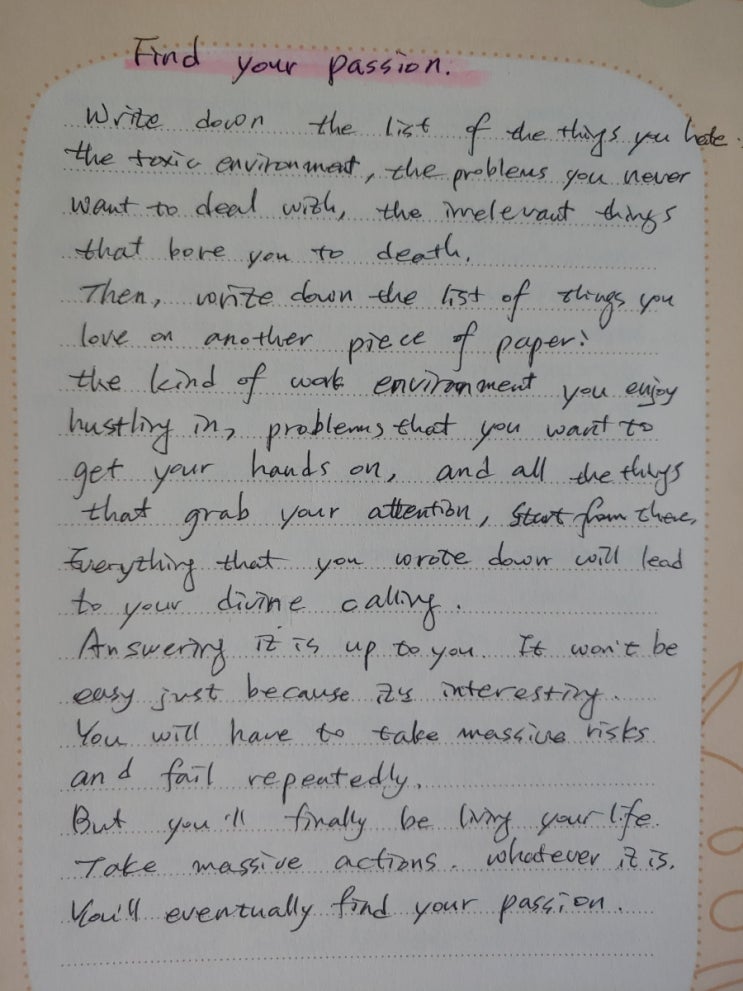 Find your passion.
Write down the list of the things you hate.
the toxic environment, the problems you never
want to deal with, the irrelevant things
that bore you to death.
Then, write down the list of things you
love on another piece of paper:
the kind of work environment you enjoy
hustling in, problems that you want to
get your hands on, and all the things
that grab your attention, start from there,
Everything that you wrote down will lead
to your divine calling.
Answering it is up to you. It won't be
easy just because it's interesting.
You will have to take massive risks
and fail repeatedly.
But you'll finally be living your life.
Take massive actions. whatever it is.
You'll eventually find your passion.